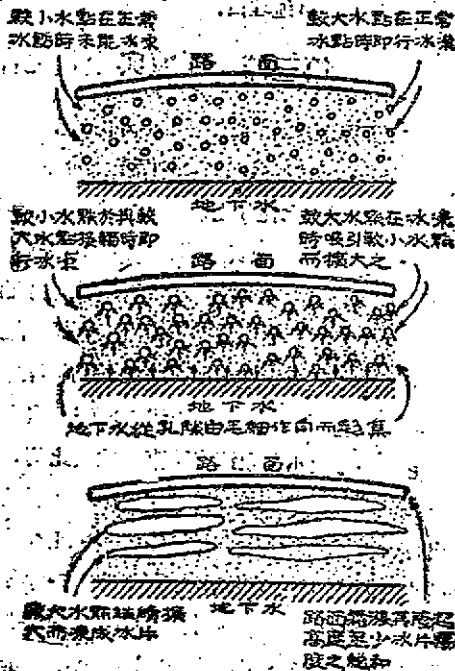 較小水點在正常
冰點時未能冰凍
較大水點在正常
冰點時即行冰凍
路面
地下水
較小水點於與較
大水點接觸時即
行冰凍
較大水點在冰凍
時吸引較小水點
而擴大之
路面
地下水
地下水從孔隙由毛細作向而
路面
較大水點繼續擴
大而凍成冰片
地下水
路面
高度至少冰片
度之總和